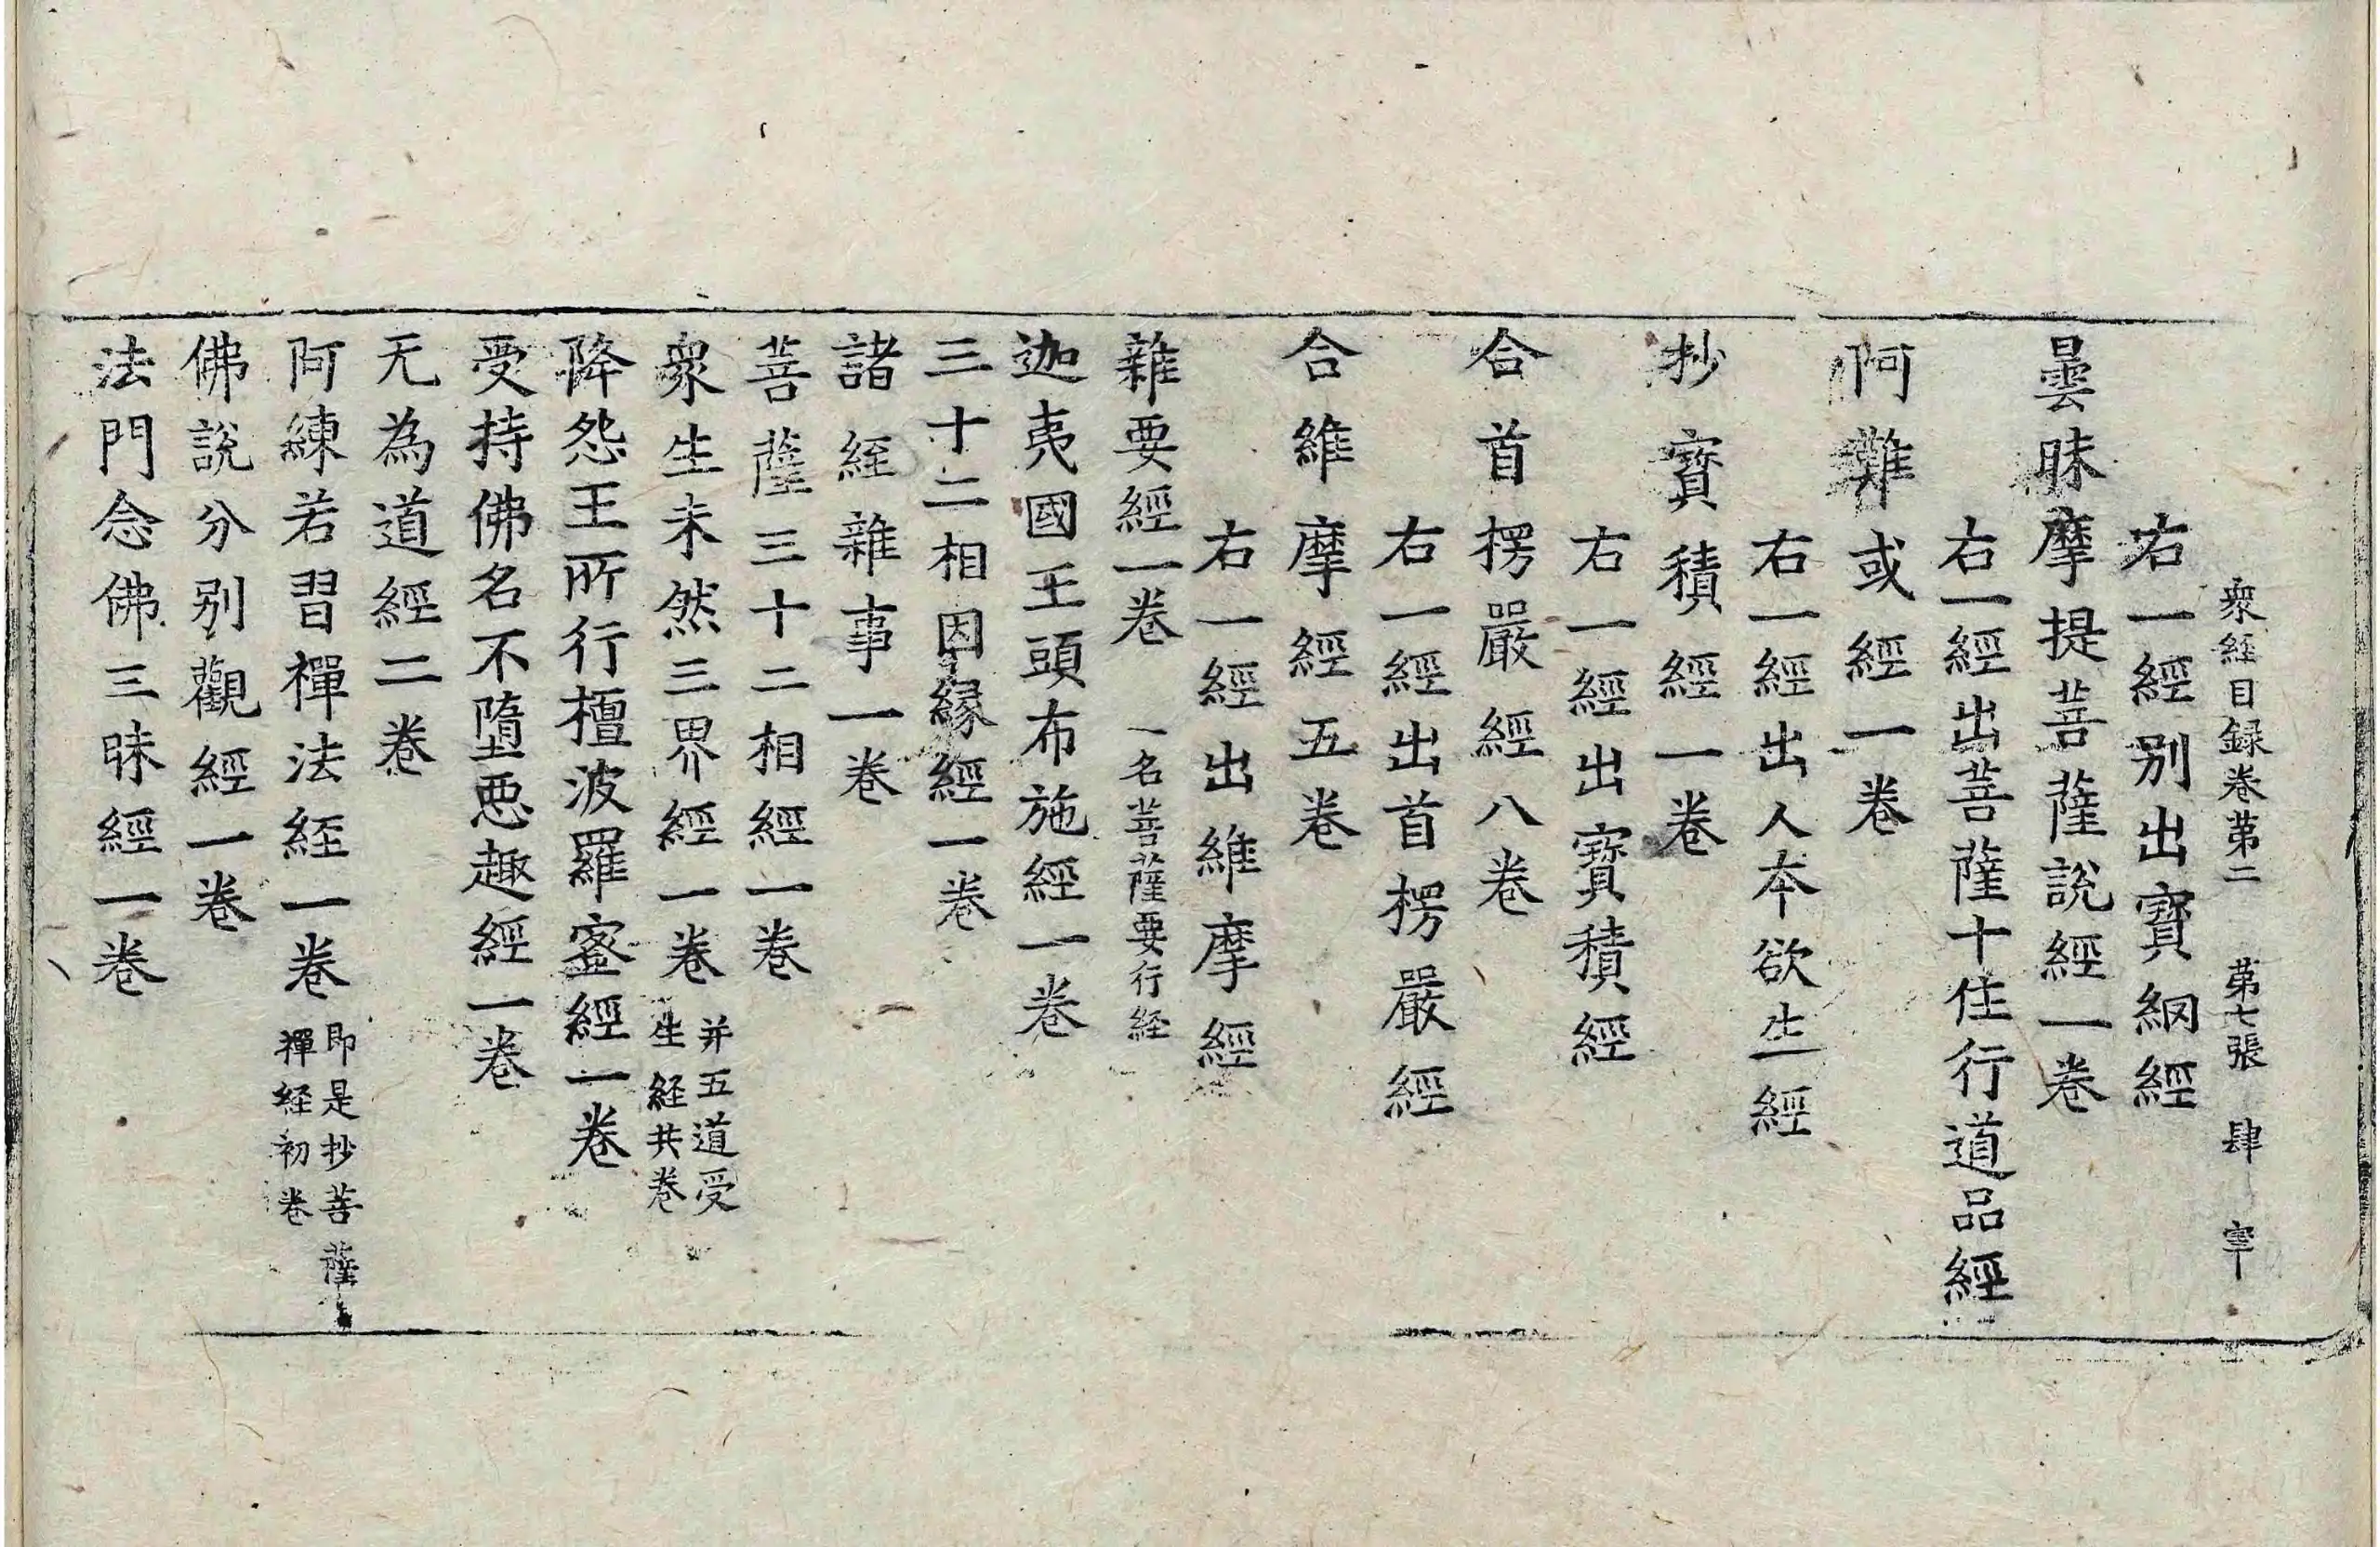 衆経目録卷第二 第七張 肆 宰
右一經别出寳網經
曇昧摩提菩薩說經一卷
右一經出菩薩十住行道品經
阿難或經一卷
右一經出人本欲生經
抄寳積經一卷
右一經出寳積經
合首楞嚴經八卷
右一經出首楞嚴經
合維摩經五卷
右一經出維摩經
雜要經一卷 一名菩薩要行経
迦夷國王頭布施經一卷
三十二相因縁經一卷
諸経雜事一卷
菩薩三十二相經一卷
衆生未然三界經一卷 并五道受生経共卷
降怨王所行檀波羅蜜經一卷
受持佛名不墮惡趣經一卷
无為道經二卷
阿練若習禪法経一卷 即是抄菩薩禪経初卷
佛說分别觀經一卷
法門念佛三昧經一卷